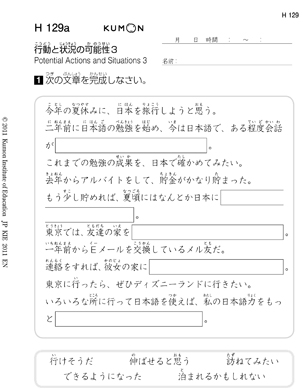 H 129
H 129a
KUMON
月 日 時間 : ～ :
行動と状況の可能性３
Potential Actions and Situations 3
名前:
1 次の文章を完成しなさい。
今年の夏休みに、日本を旅行しようと思う。
二年前に日本語の勉強を始め、今は日本語で、ある程度会話
が 。
これまでの勉強の成果を、日本で確かめてみたい。
去年からアルバイトをして、貯金がかなり貯まった。
もう少し貯めれば、夏頃にはなんとか日本に
。
東京では、友達の家を 。
一年前からEメールを交換しているメル友だ。
連絡をすれば、彼女の家に 。
東京に行ったら、ぜひディズニーランドに行きたい。
いろいろな所に行って日本語を使えば、私の日本語力をもっ
と 。
行けそうだ 伸ばせると思う 訪ねてみたい
できるようになった 泊まれるかもしれない
© 2011 Kumon Institute of Education JP KIE 2011 EN